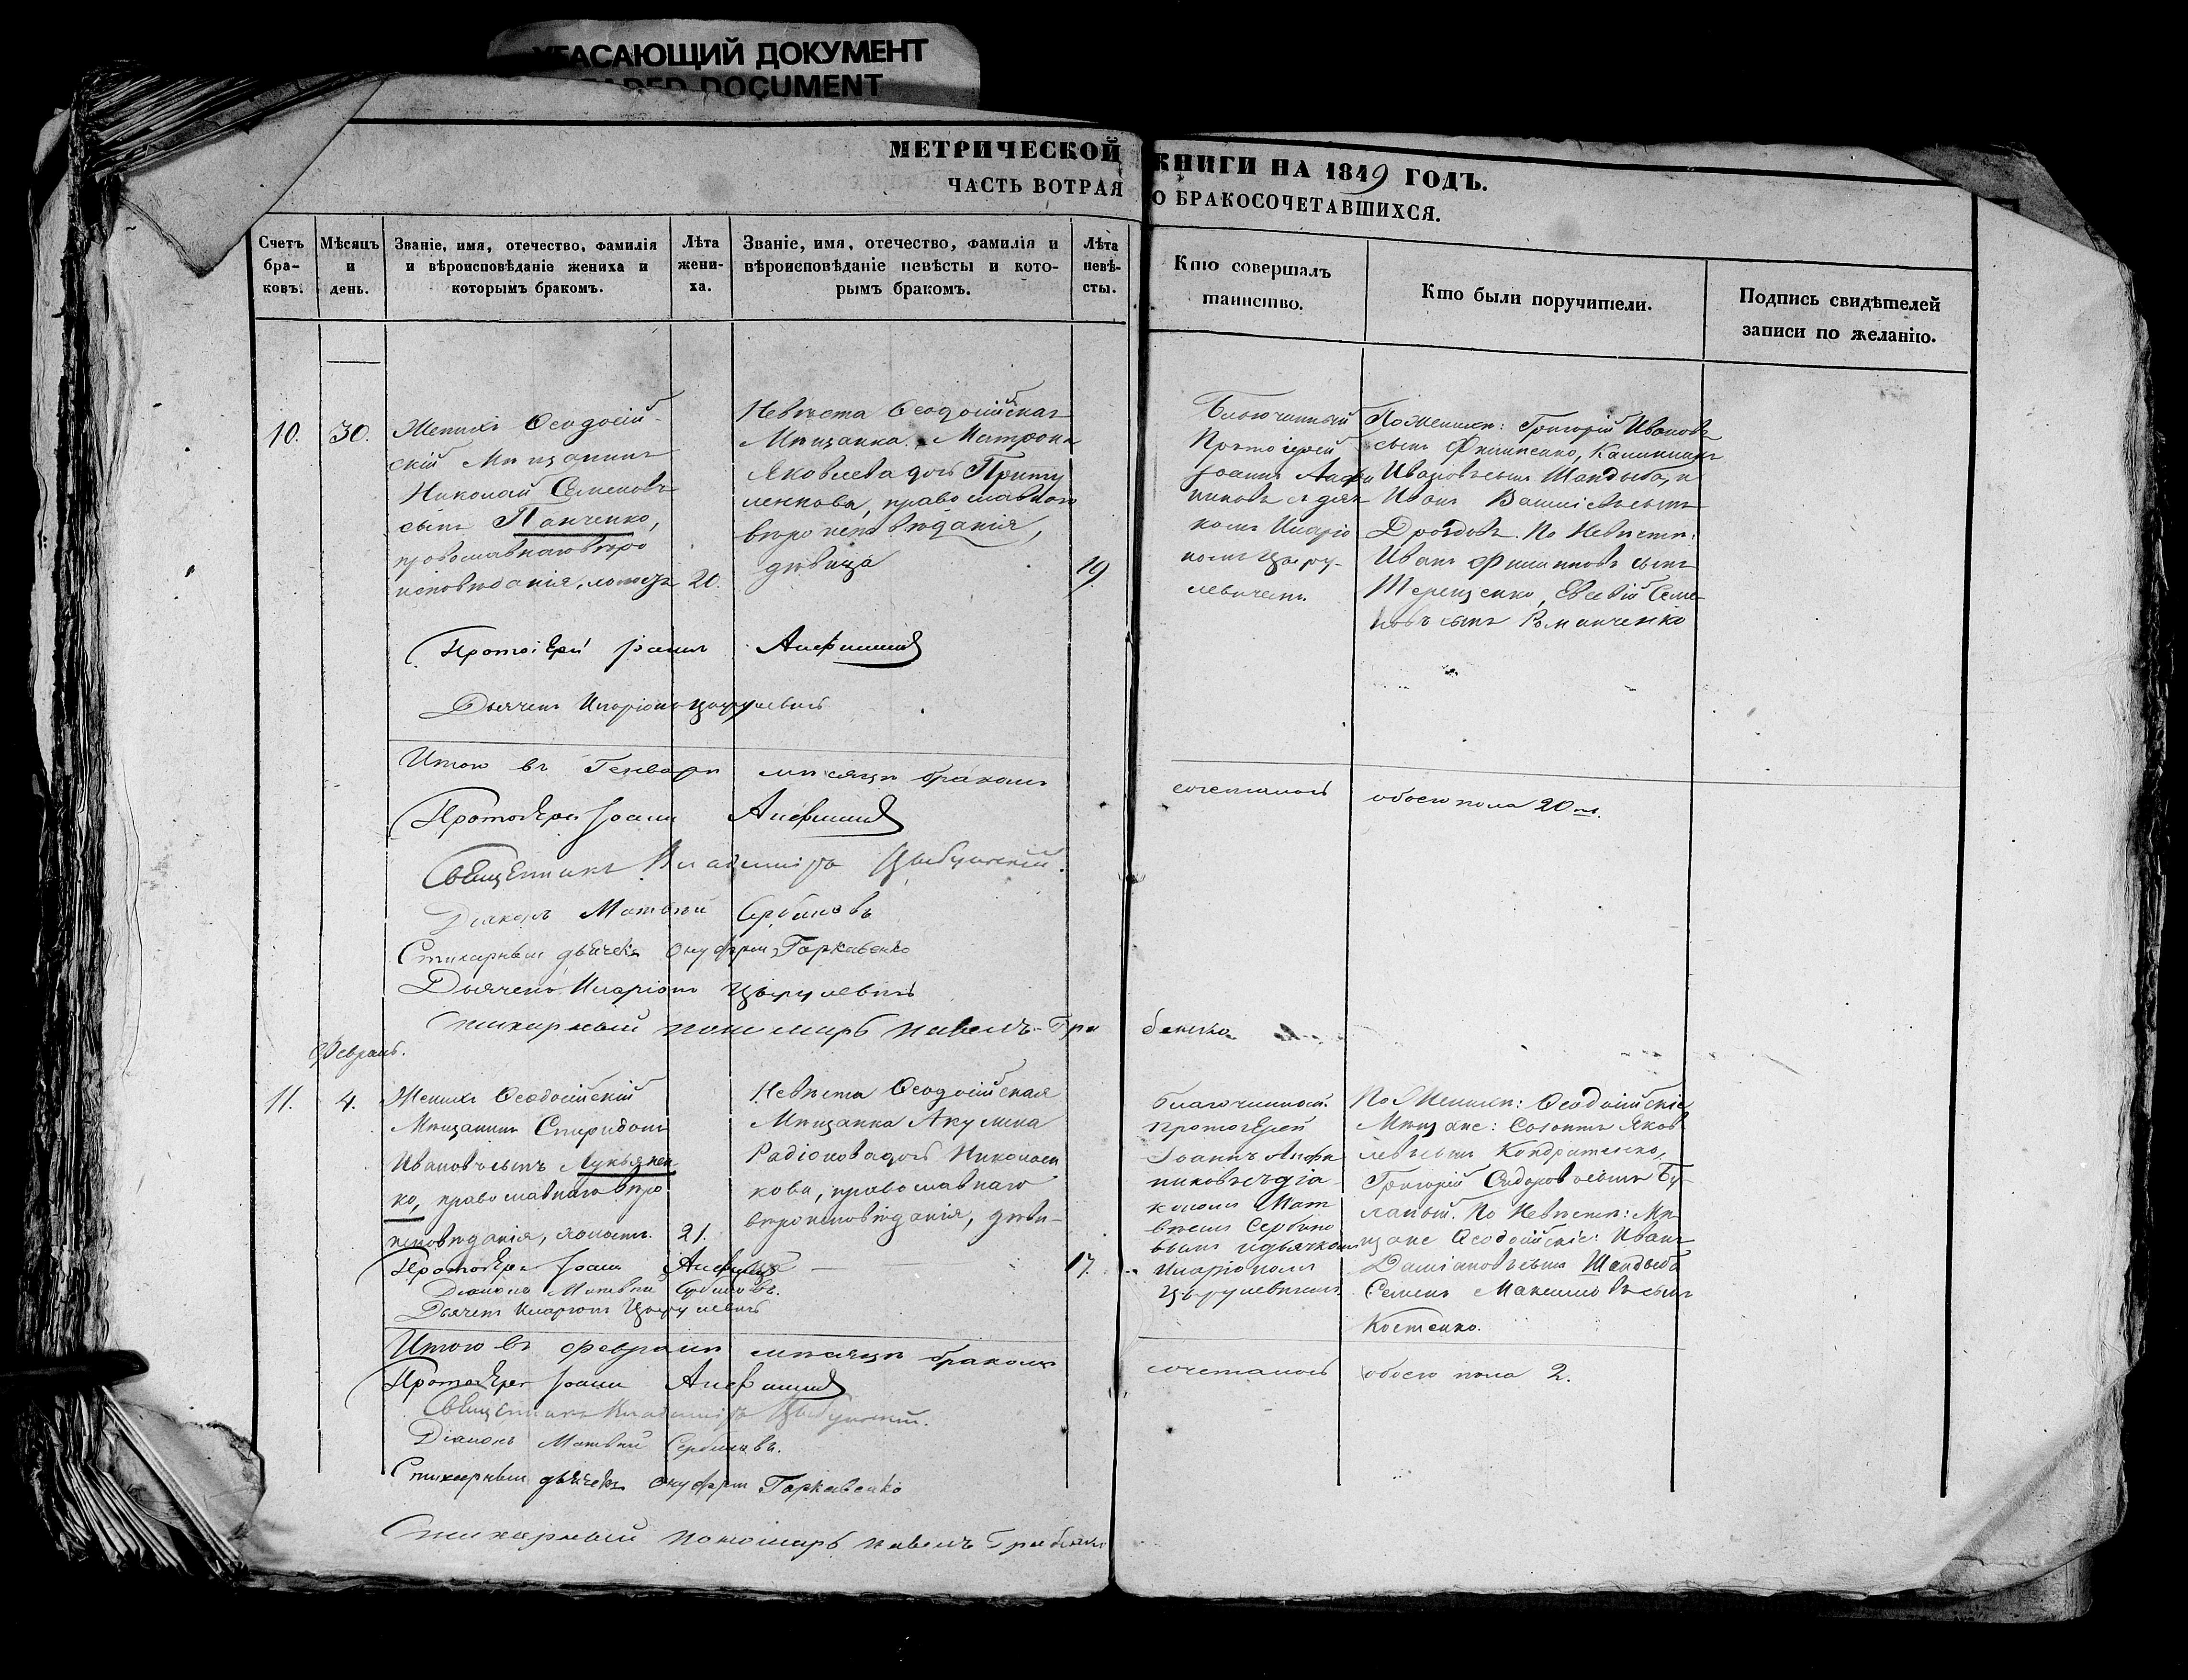 УГАСАЮЩИЙ ДОКУМЕНТ
FADED DOCUMENT
МЕТРИЧЕСКОЙ КНИГИ НА 1849 ГОДЪ.
ЧАСТЬ ВОТРАЯ О БРАКОСОЧЕТАВШИХСЯ.
Счетъ бра-
ковъ.
Мѣсяцъ
и
день.
Званіе, имя, отечество, фамилія
и вѣроисповѣданіе жениха и
которымъ бракомъ.
Лѣта
жени-
ха.
Званіе, имя, отечество, фамилія и
вѣроисповѣданіе невѣсты и кото-
рымъ бракомъ.
Лѣта
невѣ-
сты.
Кто совершалъ
таинство.
Кто были поручители.
Подпись свидѣтелей
записи по желанію.
10.
30.
Женихъ Ѳеодосій-
скій Мѣщанинъ
Николай Семеновъ
сынъ Панченко,
православнаго вѣро
исповѣданія, холостъ
20.
Невѣста Ѳеодосійская
Мѣщанка Матрона
Яковлева дочь Приту
ленкова, православнаго
вѣроисповѣданія,
дѣвица
19
Благочинный
Протоіерей
Іоаннъ Анфи
никовъ съ дьяч
комъ Иларіо
номъ Цыру-
левичемъ.
По Женихѣ: Григорій Ивановъ
сынъ Филипенко, Каллиникъ
Ивановъ сынъ Шандыба, и
Иванъ Васильевъ сынъ
Дроздовъ. По Невѣстѣ:
Иванъ Филиповъ сынъ
Терещенко, Евсевій Семе
новъ сынъ Романченко
Протоіерей Іоаннъ Анфиниковъ
Дьячекъ Иларіонъ Цырулевичъ
Итого въ Генварѣ мѣсяцѣ бракомъ сочеталось обоего пола 20 ть.
Протоіерей Іоаннъ Анфиниковъ
Священникъ Владиміръ
Діаконъ Матвѣй Сербиновъ
Стихарный дьячекъ Онуфрій Горкавенко
Дьячекъ Иларіонъ Цырулевичъ
Стихарный пономарь Павелъ Гри бенько
Февраль.
11.
4.
Женихъ Ѳеодосійскій
Мѣщанинъ Спиридонъ
Ивановъ сынъ Лукьянен
ко, православнаго вѣро
исповѣданія, холостъ.
21.
Невѣста Ѳеодосійская
Мѣщанка Акулина
Радіонова дочь Николаен
кова, православнаго
вѣроисповѣданія, дѣви-
ца
17.
Благочинный
Протоіерей
Іоаннъ Анфи
никовъ съ діа-
кономъ Мат
вѣемъ Сербино
вымъ и дьячкомъ
Иларіономъ
Цырулевичемъ.
По Женихѣ: Ѳеодосійскіе
Мѣщане: Созонтъ Яков
левъ сынъ Кондратенко,
Григорій Сидоровъ сынъ Бу-
лахой. По Невѣстѣ: Мѣ-
щане Ѳеодосійскіе: Иванъ
Даміановъ сынъ Шандыба
Семенъ Максимовъ сынъ
Костенко.
Протоіерей Іоаннъ Анфиниковъ
Діаконъ Матвѣй Сербиновъ.
Дьячекъ Иларіонъ Цырулевичъ
Итого въ февралѣ мѣсяцѣ бракомъ сочеталось обоего пола 2.
Протоіерей Іоаннъ Анфиниковъ
Священникъ Владиміръ
Діаконъ Матвѣй Сербиновъ.
Стихарный дьячекъ Онуфрій Горкавенко
Стихарный пономарь Павелъ Грибенько